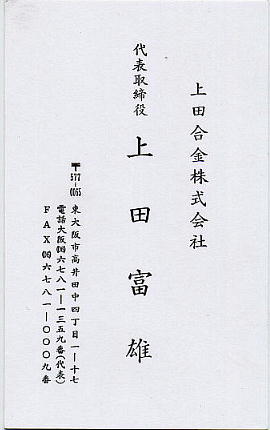 上田合金株式会社
代表取締役
上田富雄
〒577-0055
東大阪市高井田中四丁目一ー十七
電話大阪(06)六七八一ー一三五九番(代表)
FAX(06)六七八一ー〇〇〇九番